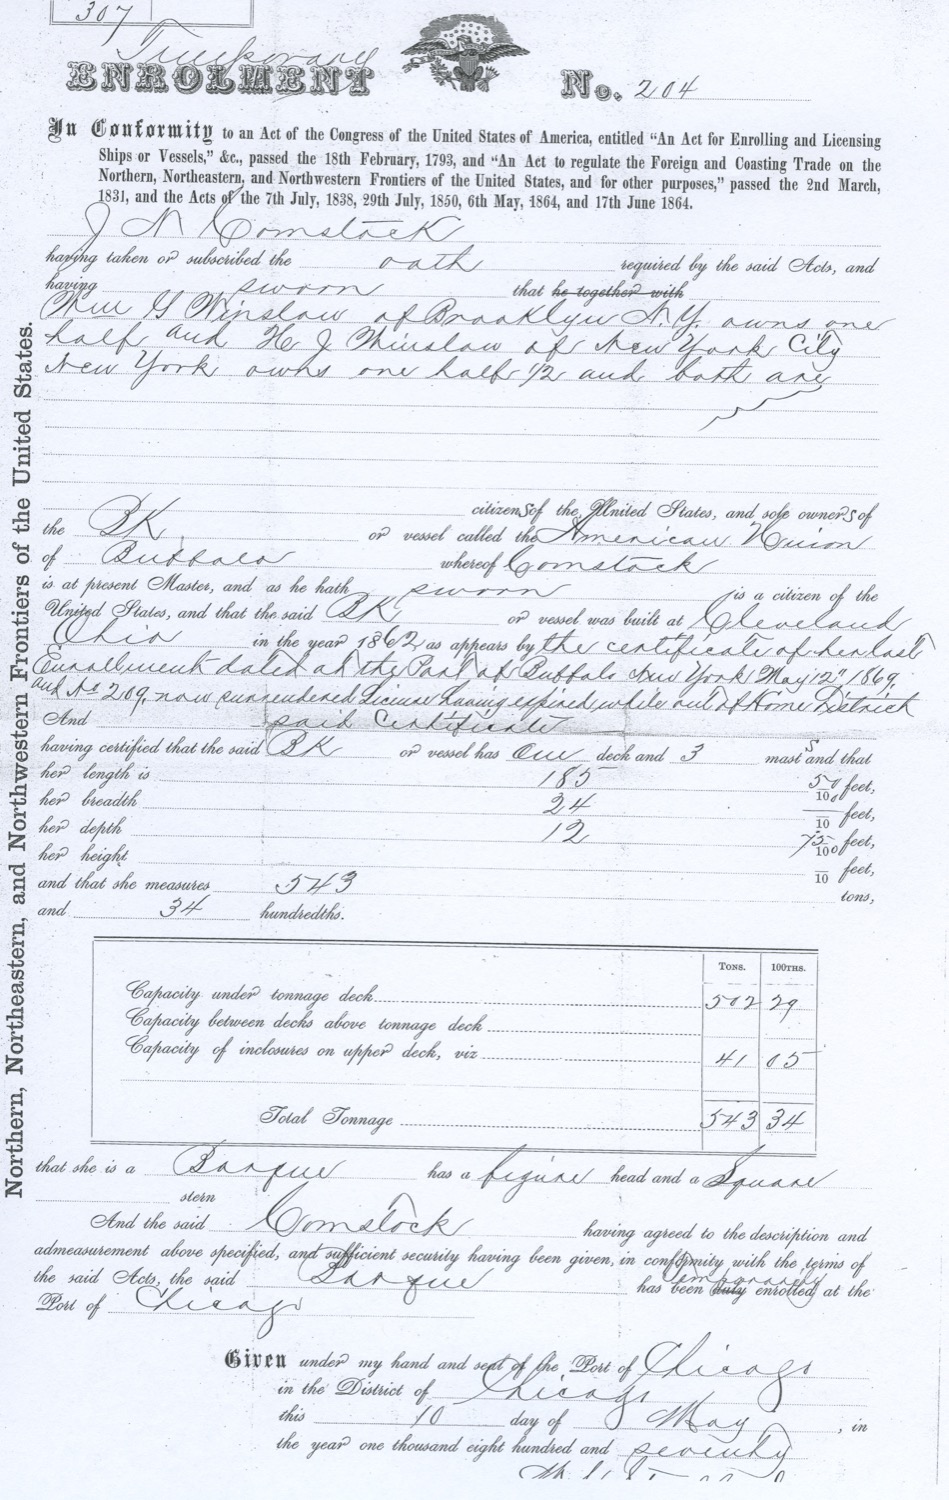 307
Temporary
ENROLMENT No. 204
In Conformity to an Act of the Congress of the United States of America, entitled "An Act for Enrolling and Licensing
Ships or Vessels," &c., passed the 18th February, 1793, and "An Act to regulate the Foreign and Coasting Trade on the
Northern, Northeastern, and Northwestern Frontiers of the United States, and for other purposes," passed the 2nd March,
1831, and the Acts of the 7th July, 1838, 29th July, 1850, 6th May, 1864, and 17th June 1864.
J N Comstock
having taken or subscribed the oath required by the said Acts, and
having sworn that he together with
Wm G Winslow of Brooklyn N.Y. owns one
half and H J Winslow of New York City
New York owns one half 1/2 and both are
citizens of the United States, and sole owners of
the BK or vessel called the American Union
of Buffalo whereof Comstock
is at present Master, and as he hath sworn is a citizen of the
United States, and that the said BK or vessel was built at Cleveland
Ohio in the year 1862 as appears by the certificate of her last
Enrollment dated at the Port of Buffalo New York May 12" 1869,
and No 209, now surrendered License having expired while out of Home District
And said Certificate
having certified that the said BK or vessel has one deck and 3 masts and that
her length is 185 50/100 feet,
her breadth 24 /10 feet,
her depth 12 75/100 feet,
her height /10 feet,
and that she measures 543 tons,
and 34 hundredths.
TONS. 100THS.
Capacity under tonnage deck 502 29
Capacity between decks above tonnage deck
Capacity of inclosures on upper deck, viz 41 05
Total Tonnage 543 34
that she is a Barque has a figure head and a Square
stern
And the said Comstock having agreed to the description and
admeasurement above specified, and sufficient security having been given, in conformity with the terms of
the said Acts, the said Barque has been duly temporarily enrolled at the
Port of Chicago
Given under my hand and seal of the Port of Chicago
in the District of Chicago
this 10 day of May, in
the year one thousand eight hundred and seventy
Northern, Northeastern, and Northwestern Frontiers of the United States.